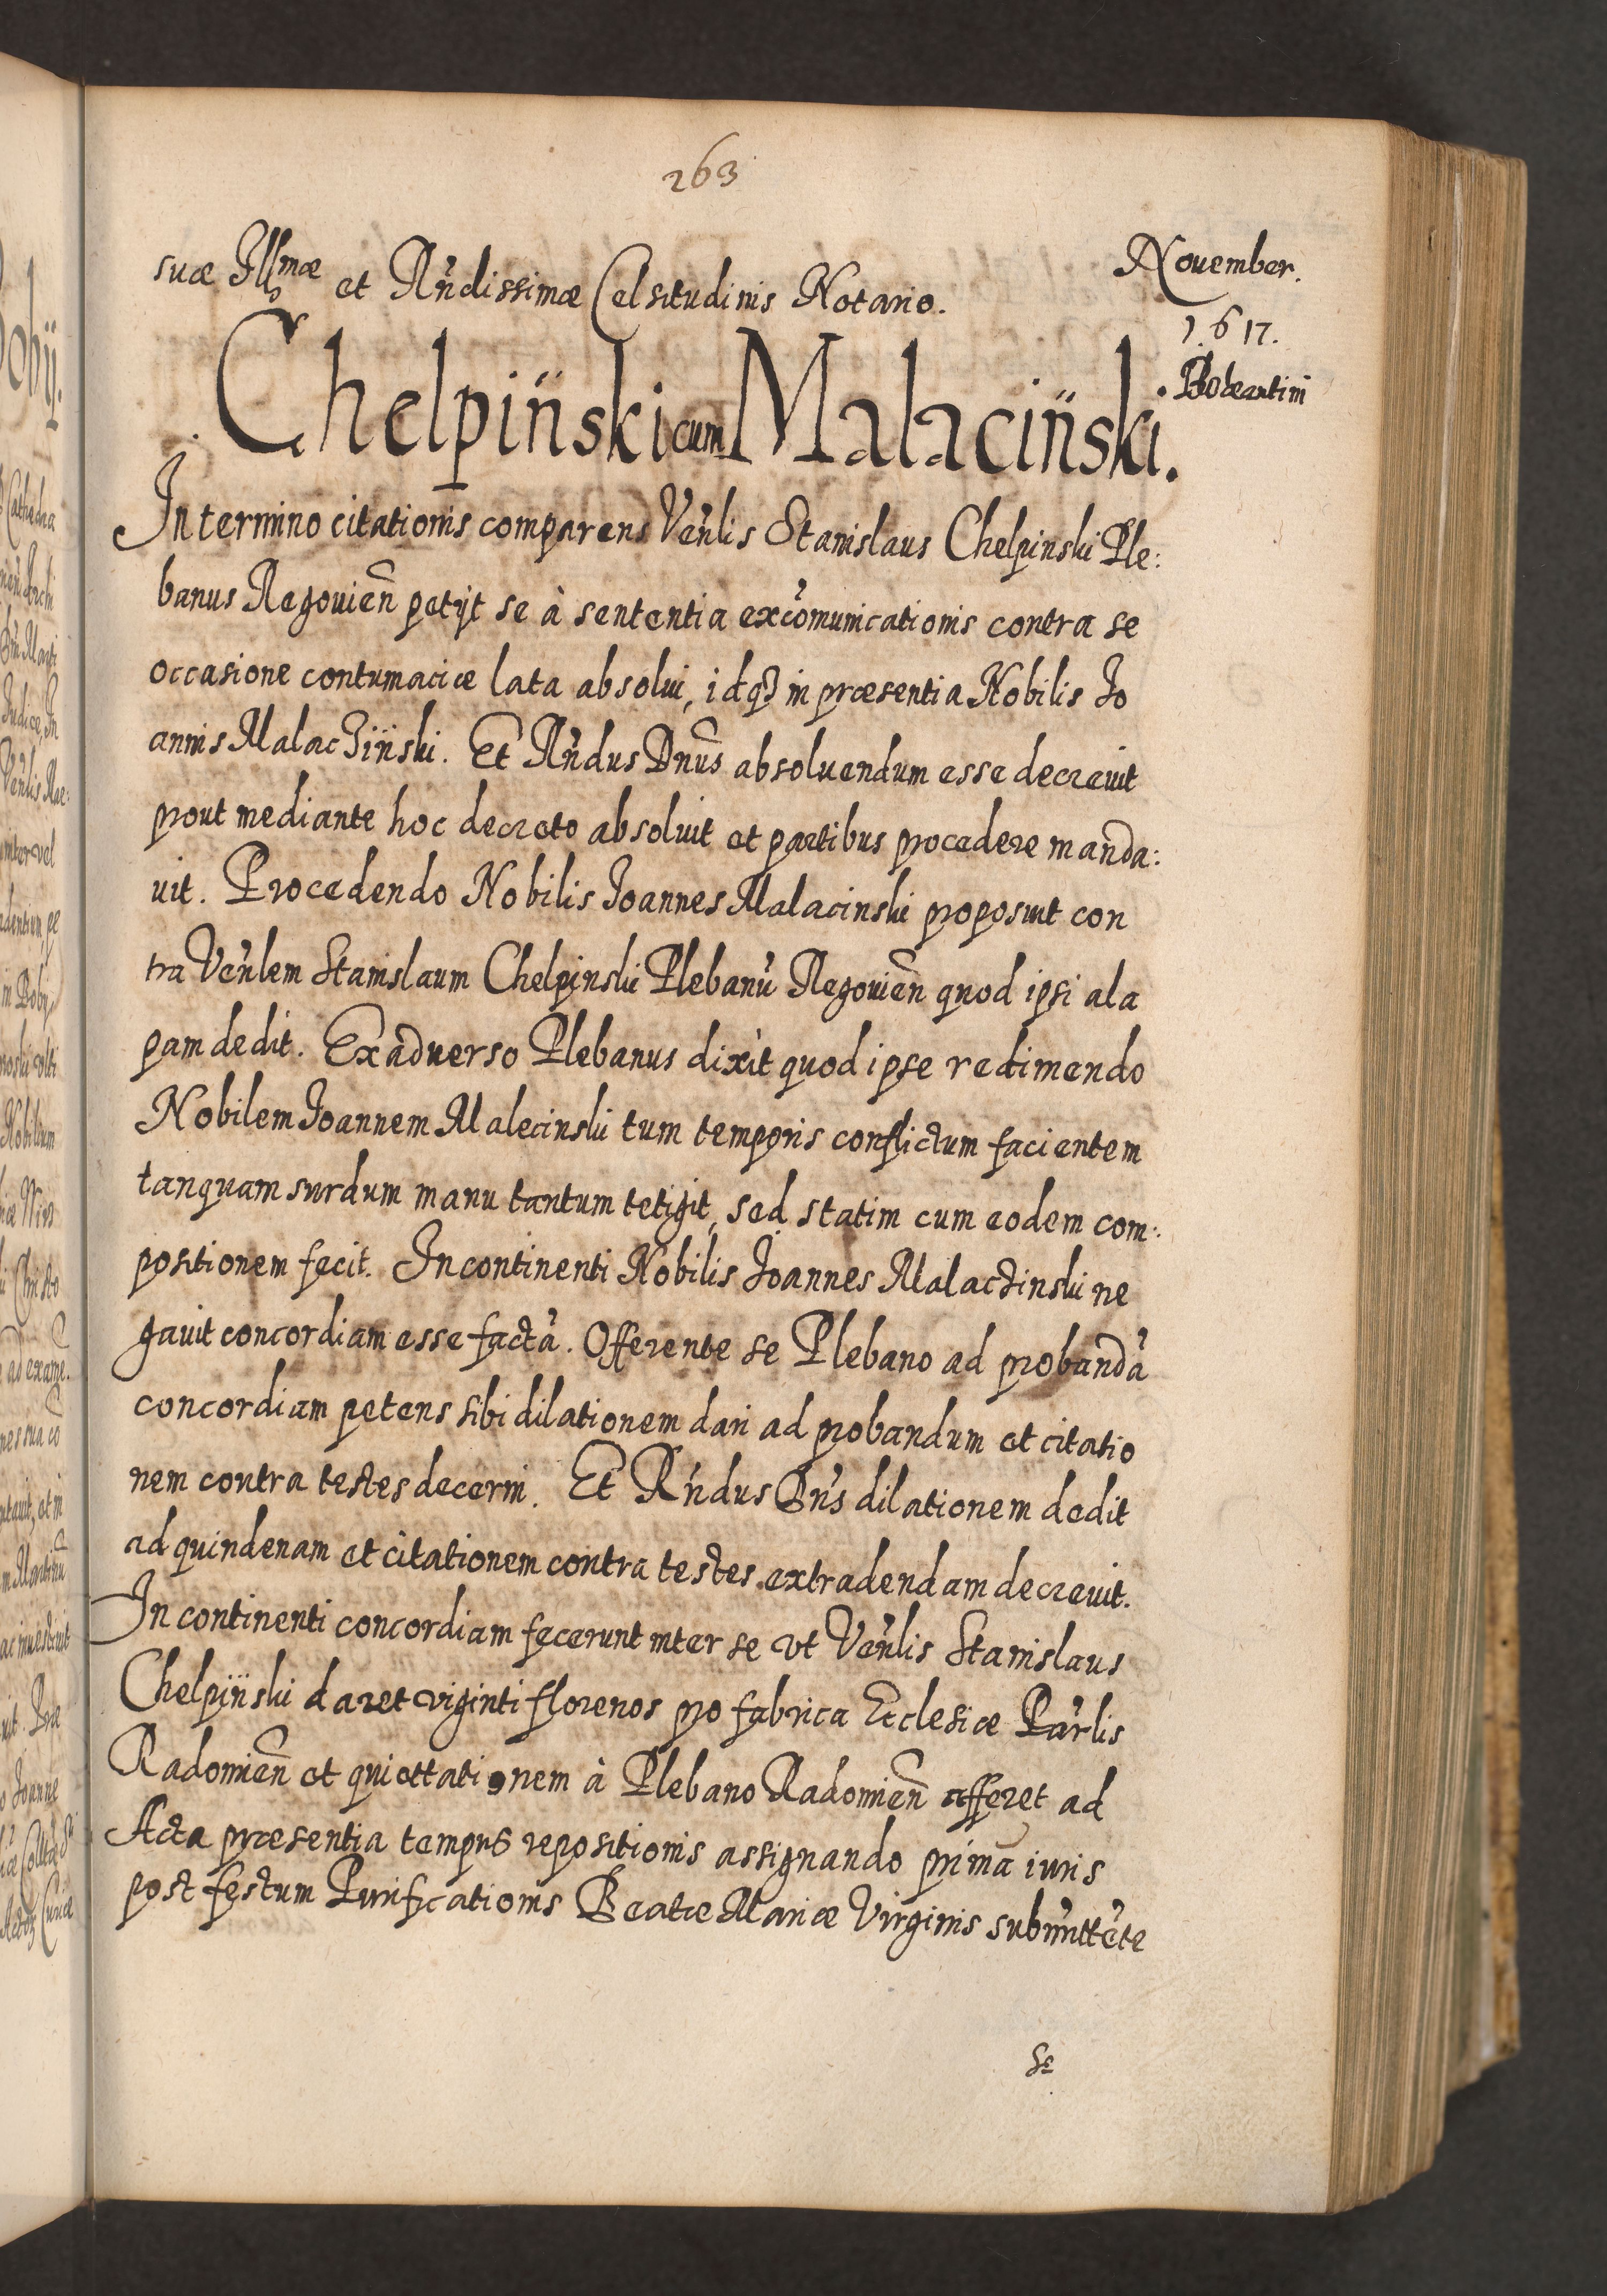 263
suæ Illmæ et Rndissimæ Celsitudinis Notario.
November.
1617.
Chelpiński cum Malaciński.
In termino citationis comparens Venlis Stanislaus Chelpinski Ple:
banus Regouien petijt se à sententia excomunicationis contra se
occasione contumaciæ lata absolui, idq3 in præsentia Nobilis Jo
annis Malacziński. Et Rndus Dnus absoluendum esse decreuit
prout mediante hoc decreto absoluit et partibus procedere manda:
uit. Procedendo Nobilis Joannes Malacinski proposuit con
tra Venlem Stanislaum Chelpinski Plebanu Regouien quod ipsi ala
pam dedit. Ex aduerso Plebanus dixit quod ipse redimendo
Nobilem Joannem Malecinski tum temporis conflictum facientem
tanquam surdum manu tantum tetigit, sed statim cum eodem com:
positionem fecit. Incontinenti Nobilis Joannes Malaczinski ne
gauit concordiam esse factā. Offerente se Plebano ad probandā
concordiam petens sibi dilationem dari ad probandum et citatio
nem contra testes decerni. Et Rndus Dns dilationem dedit
ad quindenam et citationem contra testes extradendam decreuit.
In continenti concordiam fecerunt inter se vt Venlis Stanislaus
Chelpiński daret viginti florenos pro fabrica Ecclesiæ Parlis
Radomien et quiettationem à Plebano Radomien afferet ad
Acta præsentia tempus repositionis assignando prima iuris
post festum Purificationis Beatæ Mariæ Virginis submittēte
se